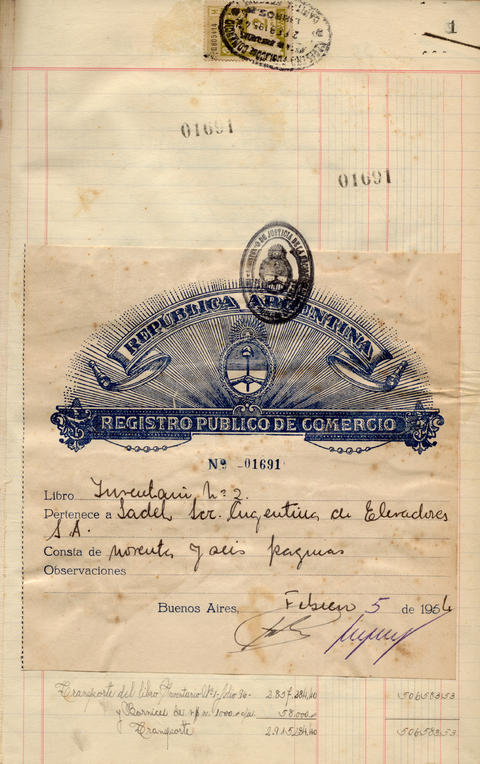 1
01691
01691
REPUBLICA ARGENTINA
REGISTRO PUBLICO DE COMERCIO
Nº 01691
Libro Inventario Nº 2.
Pertenece a Sadel Soc. Argentina de Elevadores
S.A.
Consta de noventa y seis paginas
Observaciones
Buenos Aires, Febrero 5 de 1954
Transporte del libro Inventario Nº 1- folio 96- 2.857.284,40 506583,53
y Barnices de 58.000
Transporte 2.915.284,40 506583,53